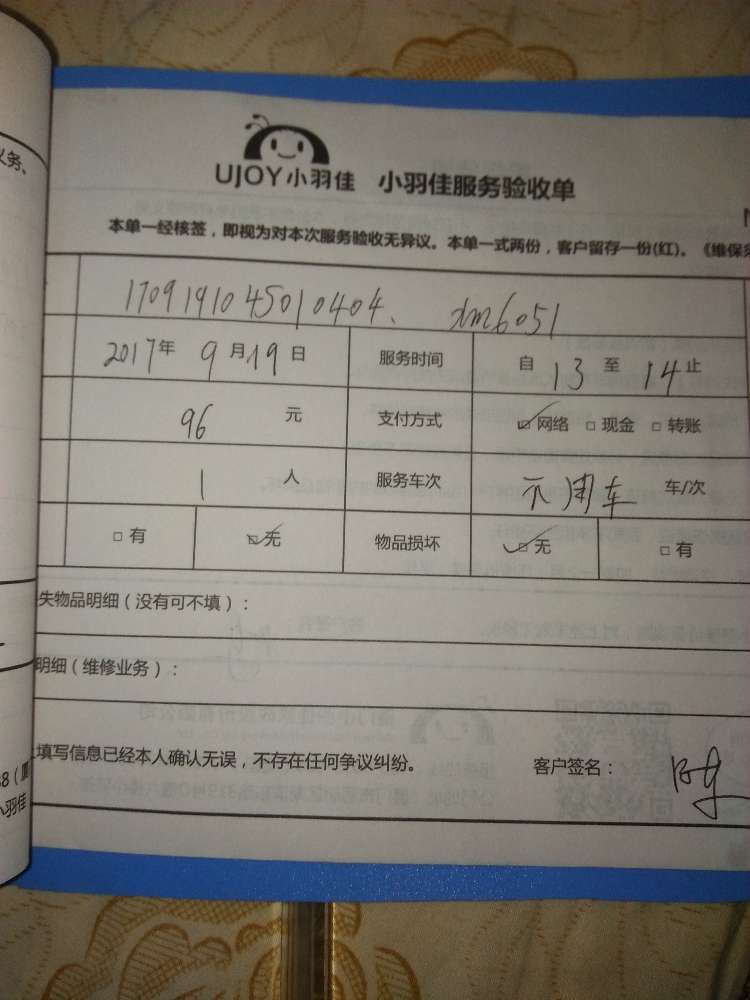 义务、
UJOY小羽佳 小羽佳服务验收单
本单一经核签，即视为对本次服务验收无异议。本单一式两份，客户留存一份(红)。《维保须
1709191045010404、 xm6051
2017年 9月19日 服务时间 自 13 至 14 止
96 元 支付方式 ☑网络 □现金 □转账
1 人 服务车次 不用车 车/次
□有 ☑无 物品损坏 ☑无 □有
失物品明细（没有可不填）：
明细（维修业务）：
填写信息已经本人确认无误，不存在任何争议纠纷。 客户签名：
小羽佳